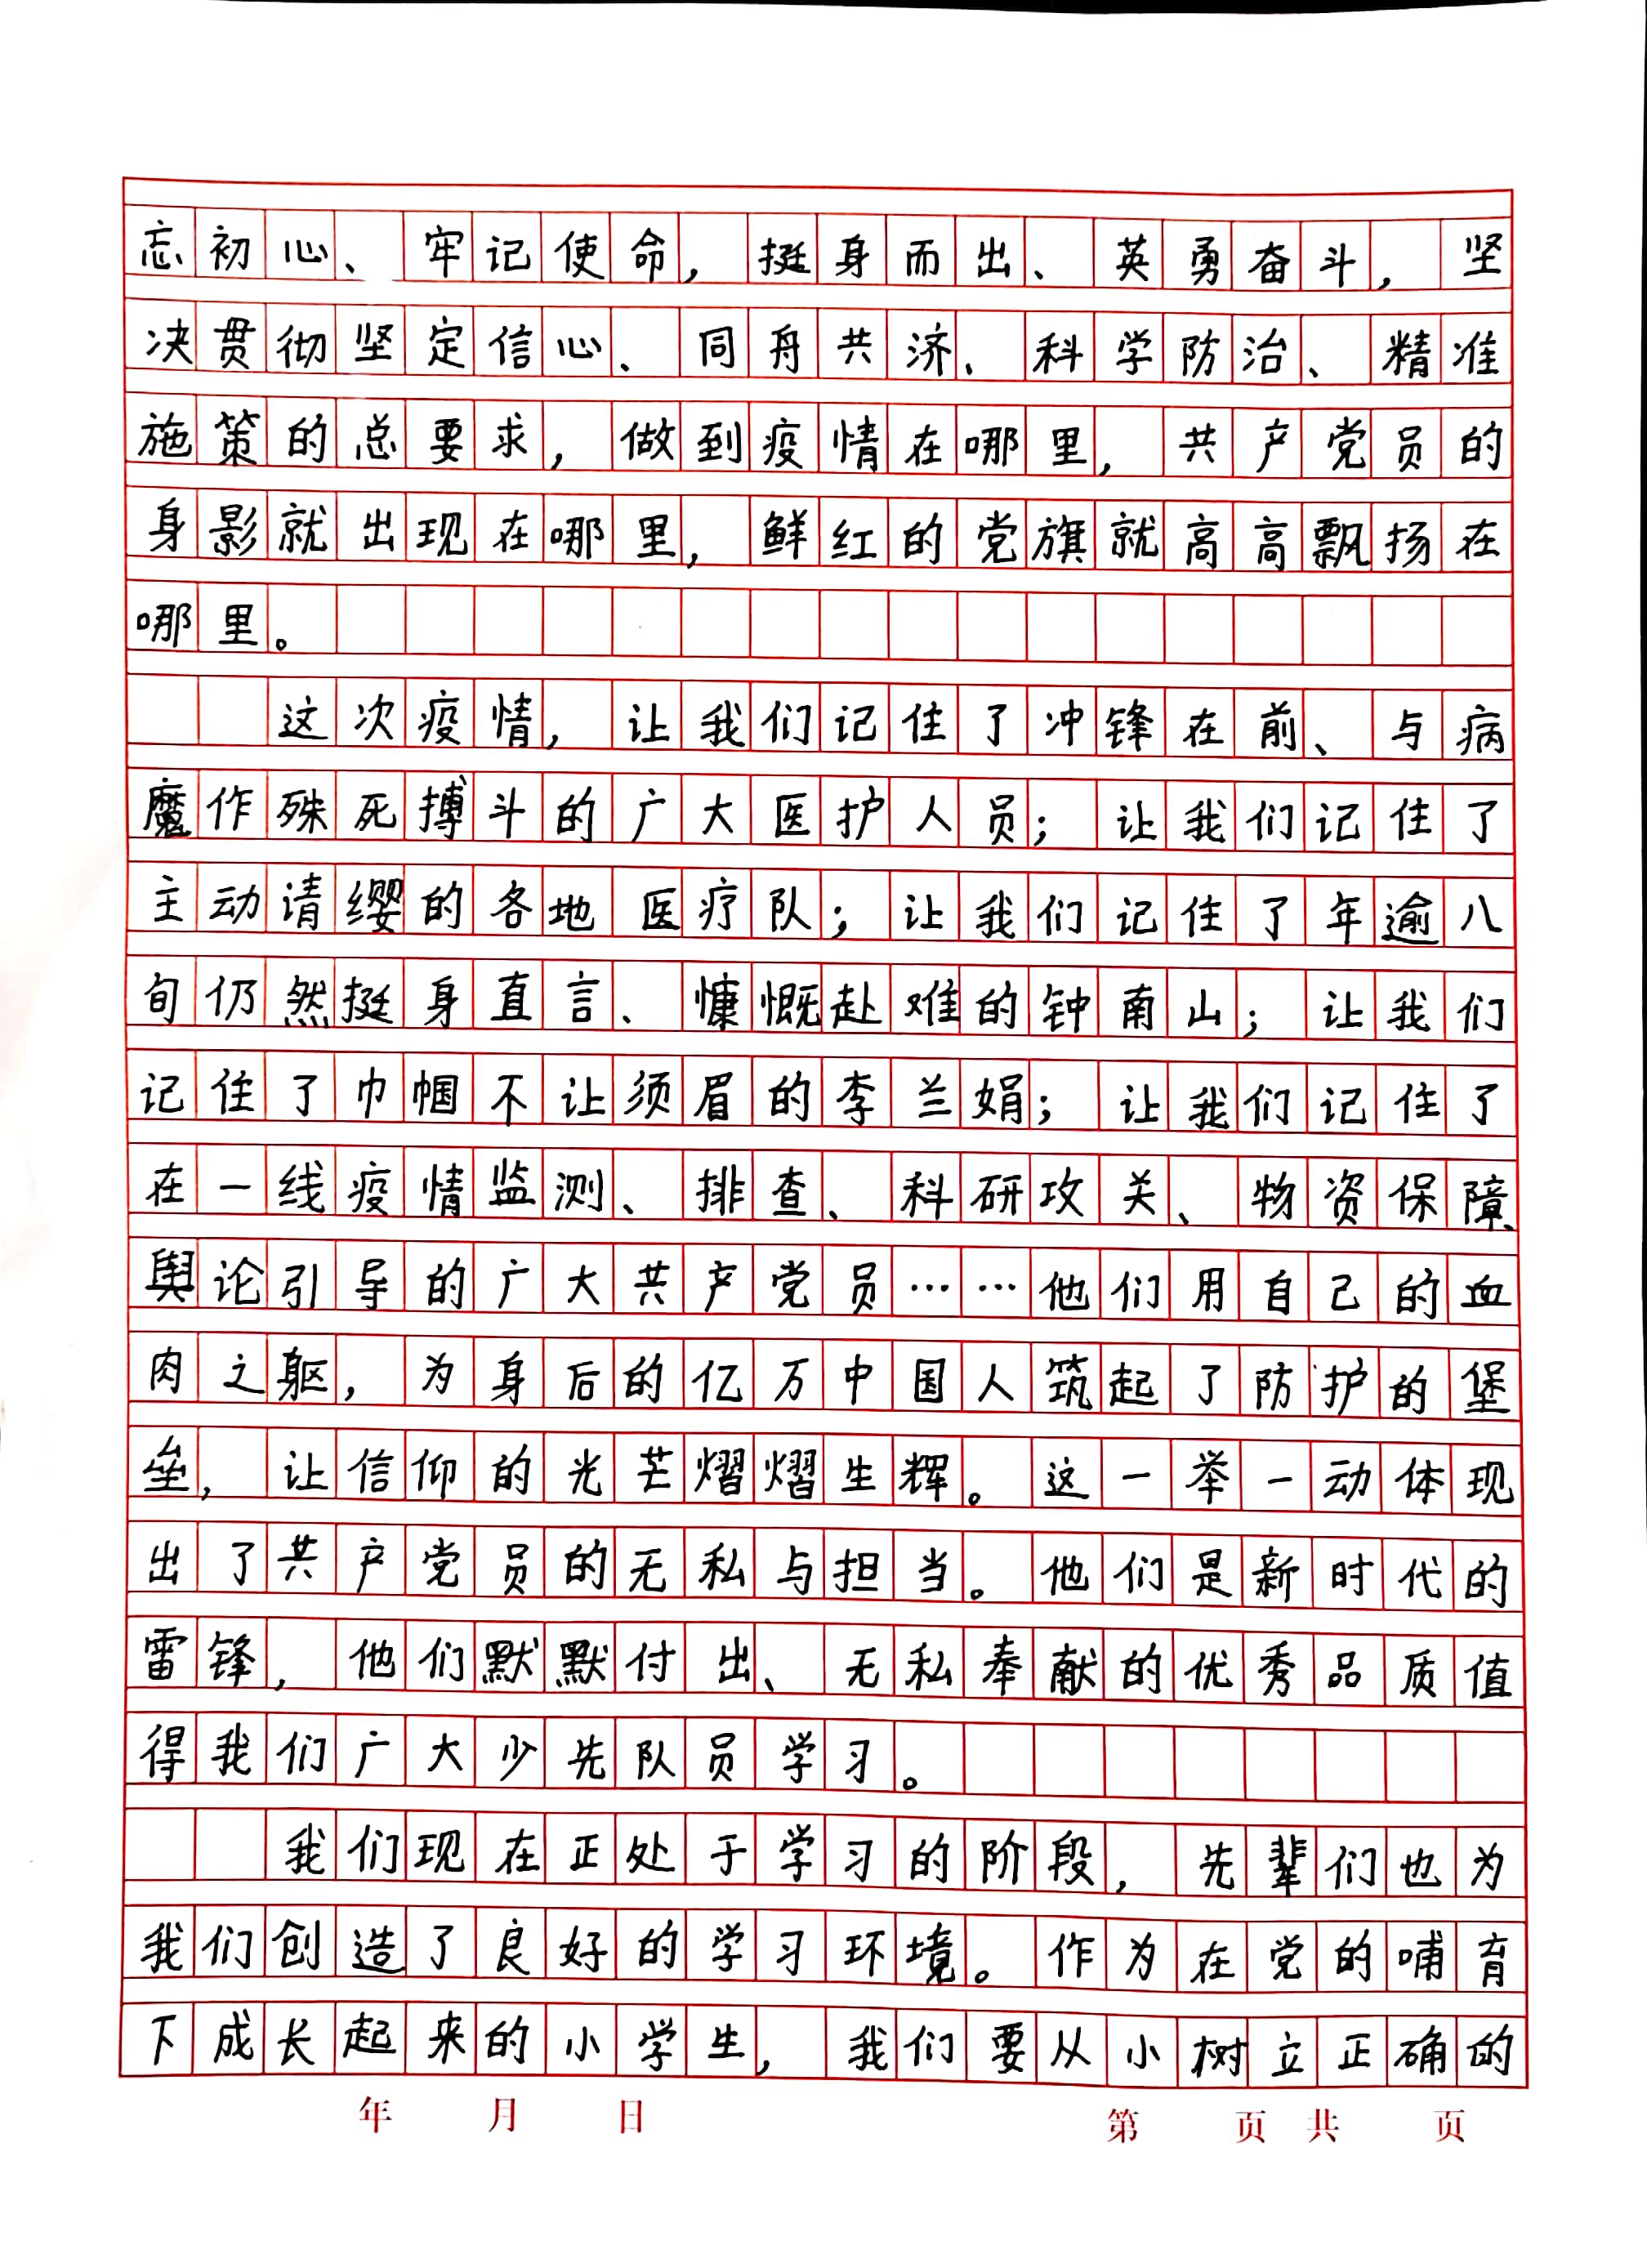 忘初心、牢记使命，挺身而出、英勇奋斗，坚
决贯彻坚定信心、同舟共济、科学防治、精准
施策的总要求，做到疫情在哪里，共产党员的
身影就出现在哪里，鲜红的党旗就高高飘扬在
哪里。
这次疫情，让我们记住了冲锋在前、与病
魔作殊死搏斗的广大医护人员；让我们记住了
主动请缨的各地医疗队；让我们记住了年逾八
旬仍然挺身直言、慷慨赴难的钟南山；让我们
记住了巾帼不让须眉的李兰娟；让我们记住了
在一线疫情监测、排查、科研攻关、物资保障、
舆论引导的广大共产党员……他们用自己的血
肉之躯，为身后的亿万中国人筑起了防护的堡
垒，让信仰的光芒熠熠生辉。这一举一动体现
出了共产党员的无私与担当。他们是新时代的
雷锋，他们默默付出、无私奉献的优秀品质值
得我们广大少先队员学习。
我们现在正处于学习的阶段，先辈们也为
我们创造了良好的学习环境。作为在党的哺育
下成长起来的小学生，我们要从小树立正确的
年 月 日 第 页 共 页